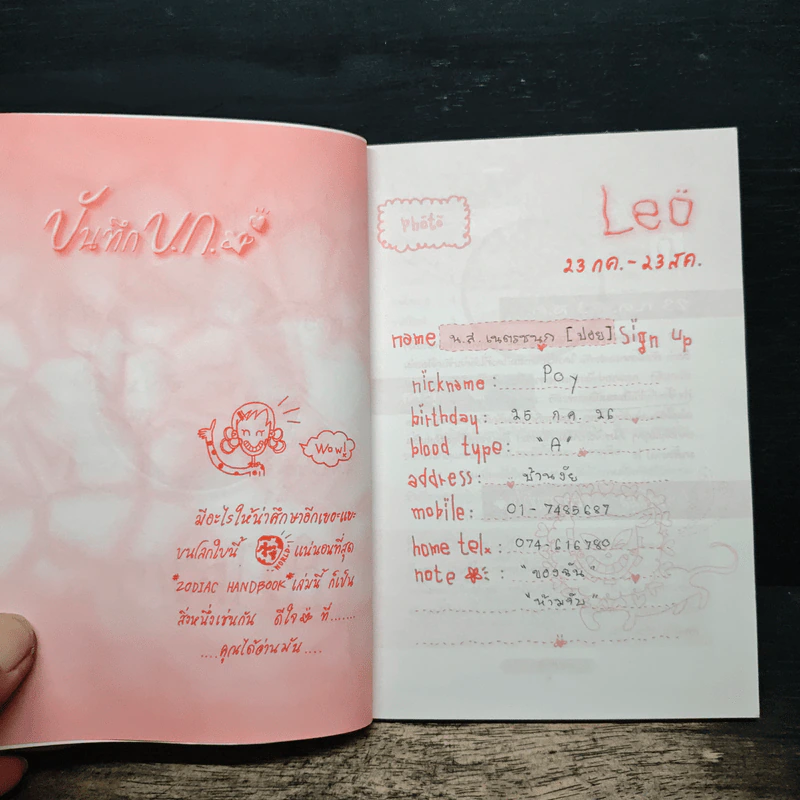 บันทึก บ.ก.
Wow!
มีอะไรให้น่าศึกษาอีกเยอะแยะ
บนโลกใบนี้ WORLD แน่นอนที่สุด
"ZODIAC HANDBOOK" เล่มนี้ ก็เป็น
สิ่งหนึ่งเช่นกัน ดีใจ ที่.......
....คุณได้อ่านมัน....
Photo
Leo
23 กค. - 23 สค.
name น.ส. เนตรชนก [ปอย] Sign up
nickname : Poy
birthday : 25 ก.ค. 26
blood type : "A"
address : บ้านงัย
mobile : 01-7485687
home tel. : 074-616780
note : "ของฉัน"
"ห้ามจับ"